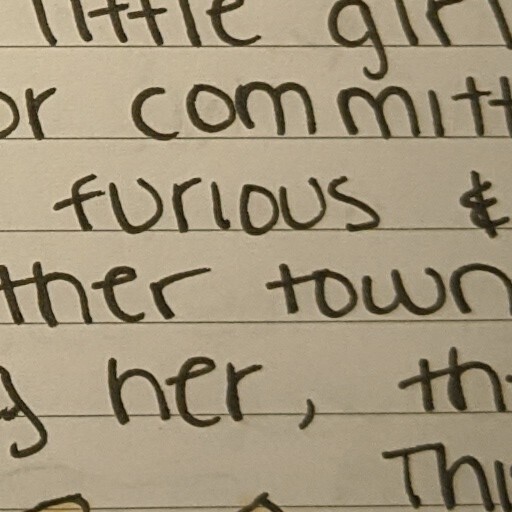 little girl
or committ
furious &
ther town
her, th
Thi